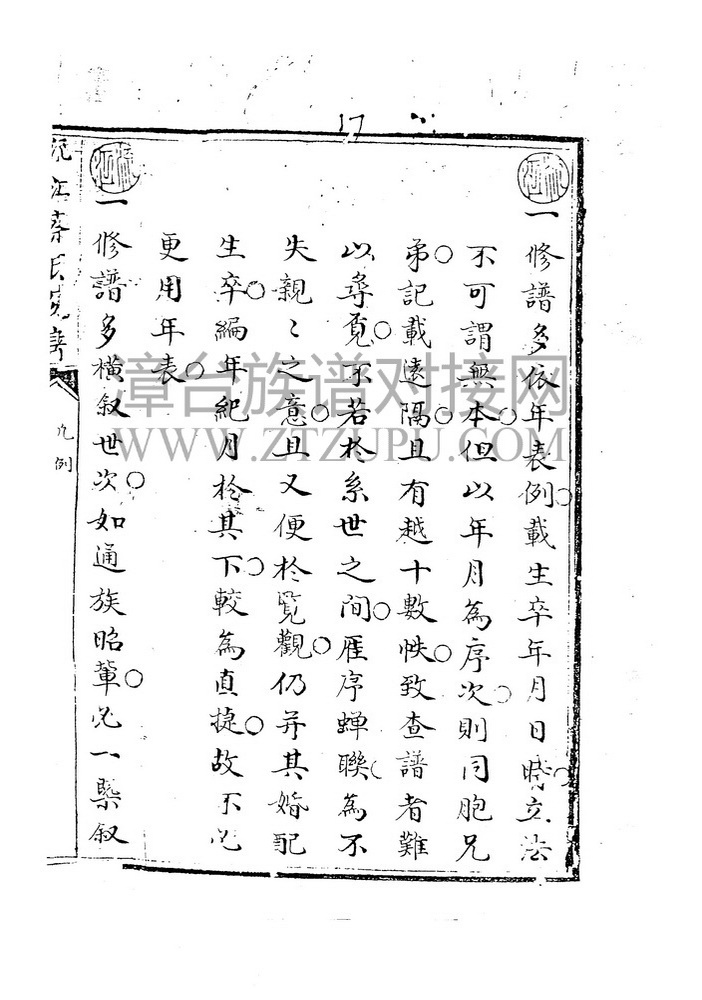 17
一修譜多依年表例載生卒年月日時立法
不可謂無本但以年月為序次則同胞兄
弟記載遠隔且有越十數帙致查譜者難
以尋覓不若於系世之間雁序蟬聯為不
失親〻之意且又便於覽觀仍并其婚配
生卒編年紀月於其下較為直捷故不必
更用年表
一修譜多橫叙世次如通族昭輩必一槩叙
江蔡氏宗譜
凡例
章台族谱对接网
WWW.ZTZUPU.COM